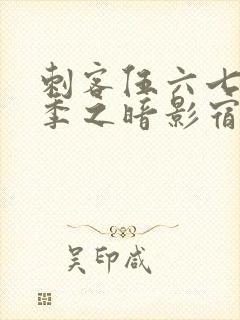 刺客伍六七
季之暗影宿
吴印咸